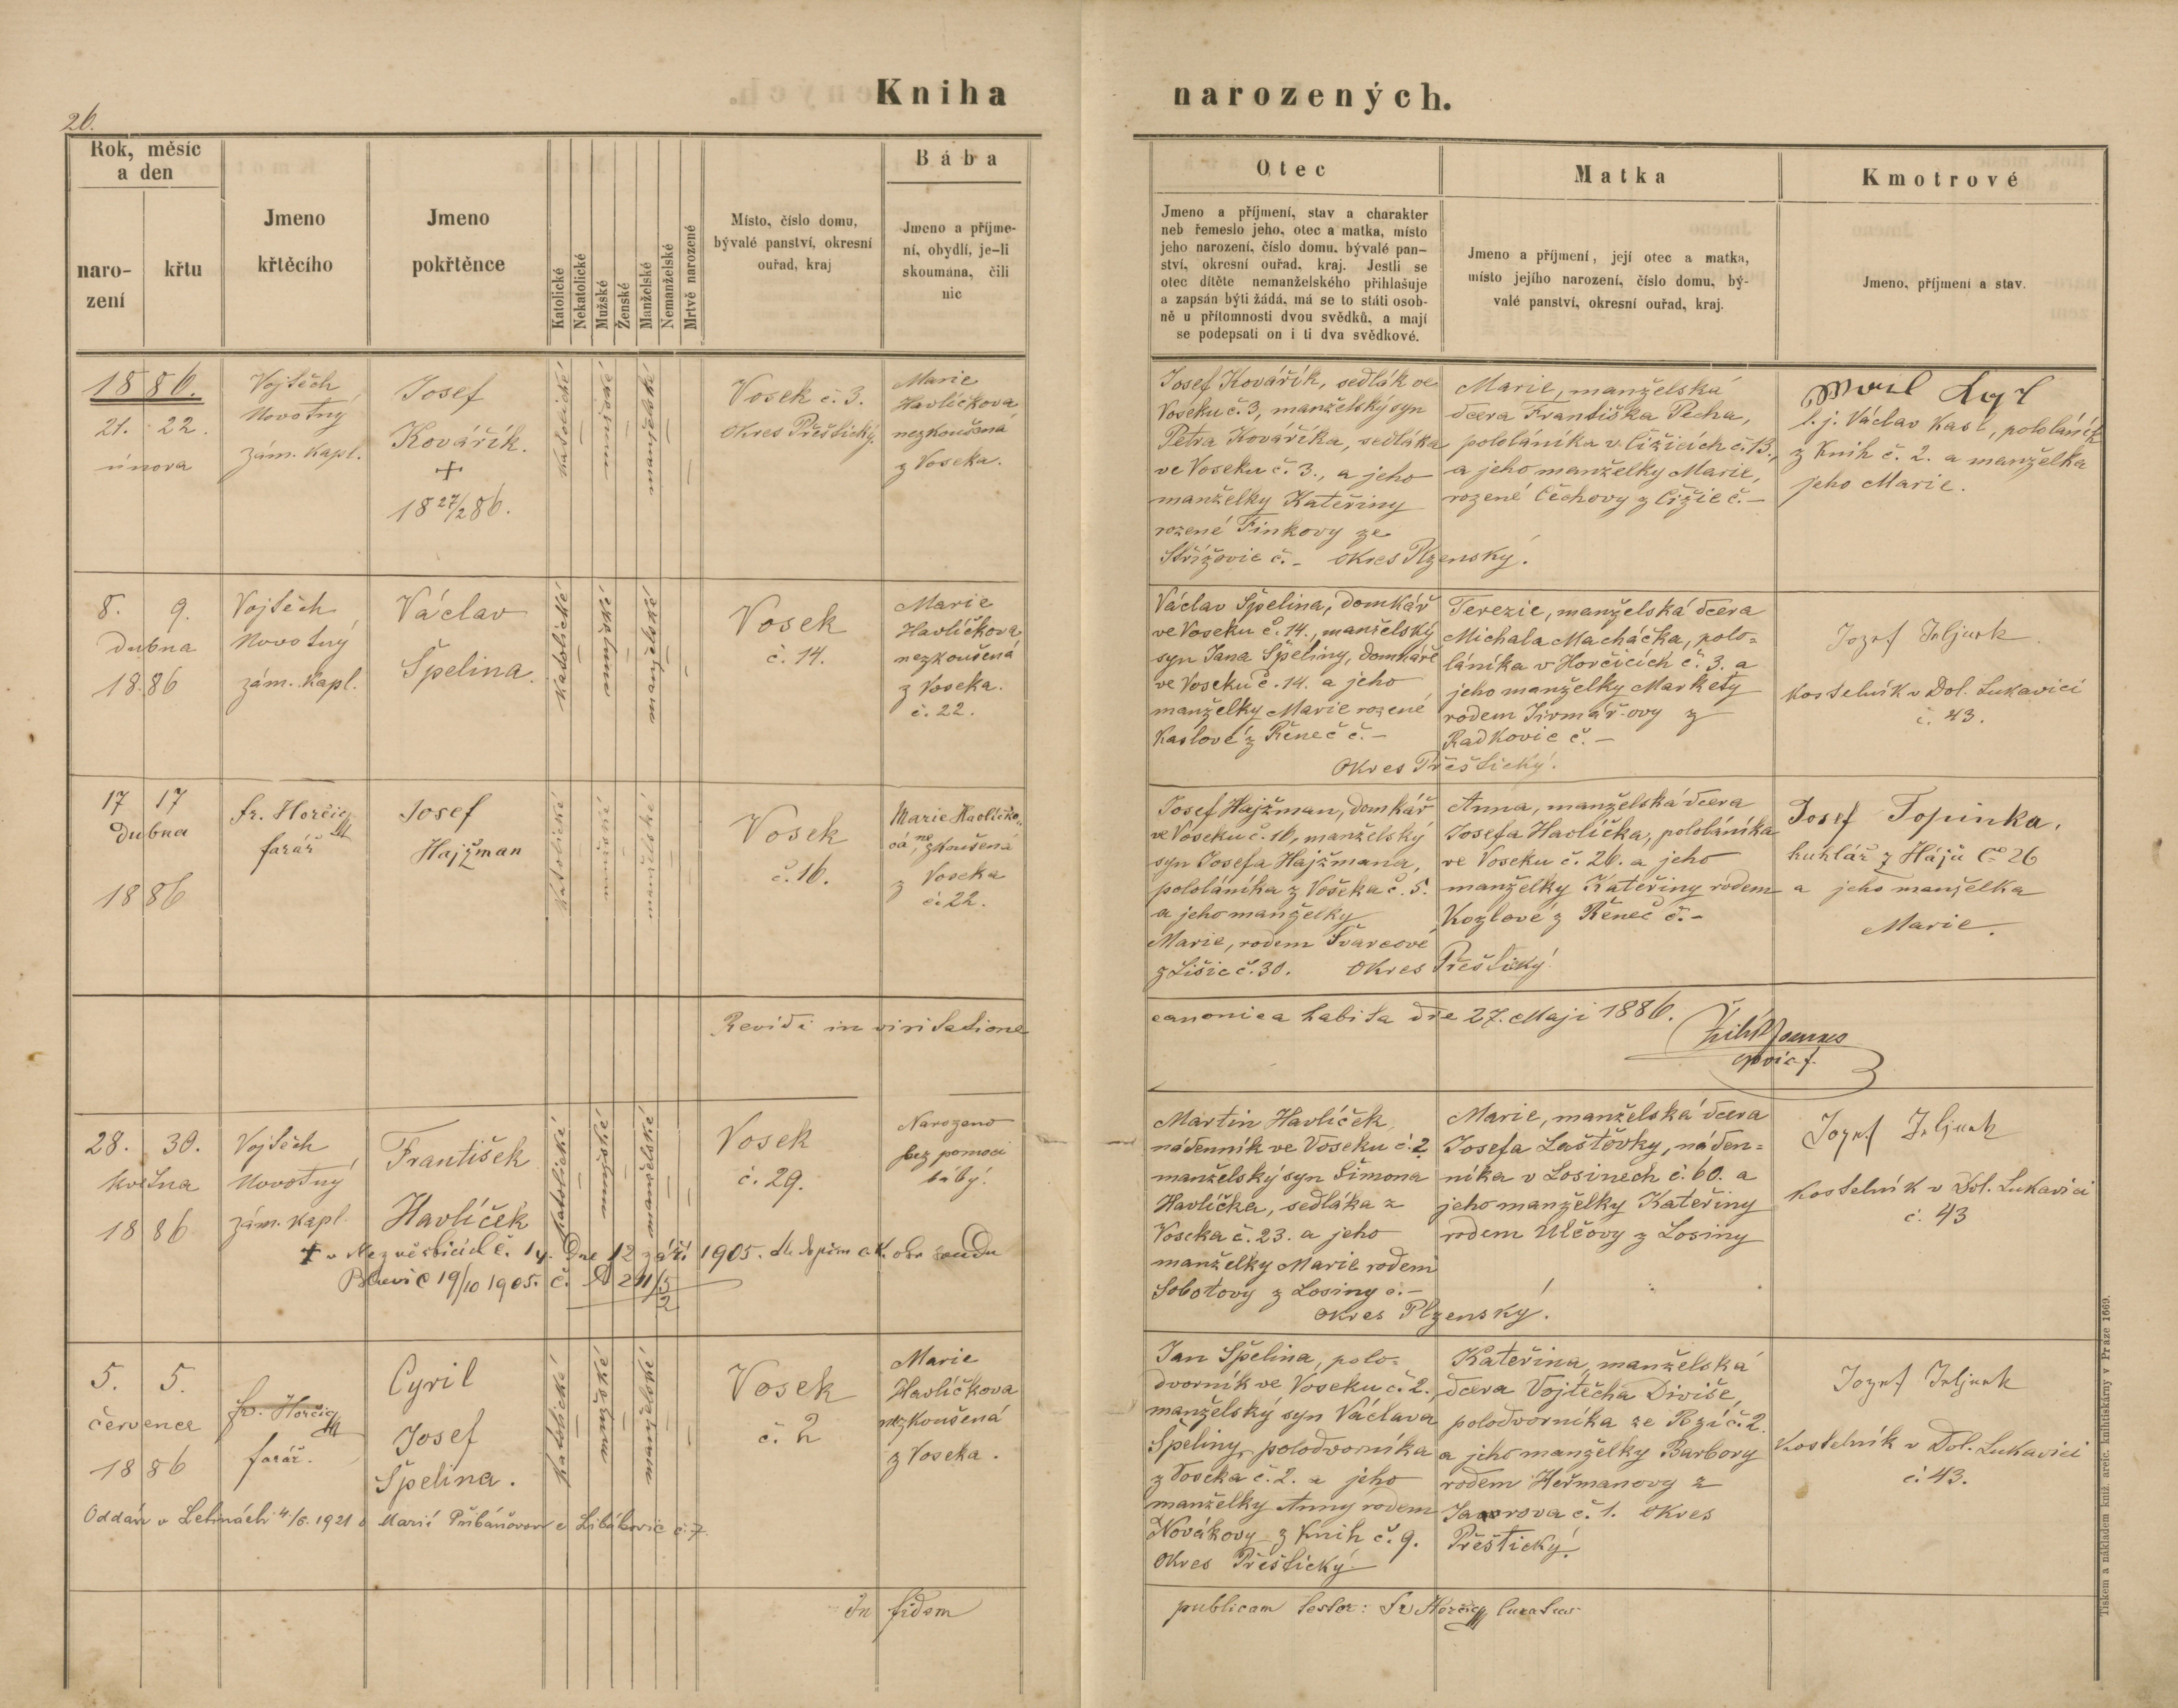 26.
Kniha narozených.
Rok, měsíc
a den
naro-
zení
křtu
Jmeno
křtěcího
Jmeno
pokřtěnce
Katolické
Nekatolické
Mužské
Ženské
Manželské
Nemanželské
Mrtvě narozené
Místo, číslo domu,
bývalé panství, okresní
ouřad, kraj
Bába
Jmeno a příjme-
ní, obydlí, je-li
skoumána, čili
nic
Otec
Jmeno a příjmení, stav a charakter
neb řemeslo jeho, otec a matka, místo
jeho narození, číslo domu, bývalé pan-
ství, okresní ouřad, kraj. Jestli se
otec dítěte nemanželského přihlašuje
a zapsán býti žádá, má se to státi osob-
ně u přítomnosti dvou svědků, a mají
se podepsati on i ti dva svědkové.
Matka
Jmeno a příjmení, její otec a matka,
místo jejího narození, číslo domu, bý-
valé panství, okresní ouřad, kraj.
Kmotrové
Jmeno, příjmení a stav.
1886.
21. 22.
února
Vojtěch
Novotný
zám. kapl.
Josef
Kovářík.
+
18 27/2 86.
katolické
mužské
manželské
Vosek č. 3.
Okres Přeštický.
Marie
Havlíčkova
nezkoušená
z Voseka.
Josef Kovářík, sedlák ve
Voseku č. 3, manželský syn
Petra Kováříka, sedláka
ve Voseku č. 3., a jeho
manželky Kateřiny
rozené Finkovy ze
Střížovic č. – okres Plzenský.
Marie, manželská
dcera Františka Pecha,
pololáníka v Čižicích č. 13.,
a jeho manželky Marie,
rozené Čechovy z Čižic č. –
t. j. Václav Kasl, pololáník
z Knih č. 2. a manželka
jeho Marie.
8. 9.
dubna
1886
Vojtěch
Novotný
zám. kapl.
Václav
Špelina.
katolické
mužské
manželské
Vosek
č. 14.
Marie
Havlíčkova
nezkoušená
z Voseka.
č. 22.
Václav Špelina, domkář
ve Voseku č. 14., manželský
syn Jana Špeliny, domkáře
ve Voseku č. 14. a jeho
manželky Marie rozené
Kaslové z Řeneč č. –
Terezie, manželská dcera
Michala Macháčka, polo-
láníka v Horčicích č. 3. a
jeho manželky Markety
rodem Jirmářovy z
Radkovic č. –
Okres Přeštický.
kostelník v Dol. Lukavici
č. 43.
17 17
dubna
1886
Fr. Horčic
farář
Josef
Hajžman
katolické
mužské
manželské
Vosek
č. 16.
Marie Havlíčko-
vá, nezkoušená
z Voseka
č. 22.
Josef Hajžman, domkář
ve Voseku č. 16, manželský
syn Josefa Hajžmana,
pololáníka z Voseka č. 5.
a jeho manželky
Marie, rodem Švarcové
z Lišic č. 30. okres Přeštický
Anna, manželská dcera
Josefa Havlíčka, pololáníka
ve Voseku č. 26. a jeho
manželky Kateřiny rodem
Kozlové z Řeneč č. –
Josef Topinka,
truhlář z Hájů č. 26
a jeho manželka
Marie.
Revidi in visitatione
canonica habita die 27. Maji 1886.
28. 30.
května
1886
Vojtěch
Novotný
zám. kapl.
František
Havlíček
katolické
mužské
manželské
Vosek
č. 29.
Narozeno
bez pomoci
báby.
+ v Nezvěsticích č. 14. dne 12 září 1905. dle dopisu c. k. okr. soudu
Blovic 19/10 1905. č. A 241/5
2
Martin Havlíček,
nádenník ve Voseku č. 2
manželský syn Šimona
Havlíčka, sedláka z
Voseka č. 23. a jeho
manželky Marie rodem
Sobotovy z Losiny č. –
okres Plzenský.
Marie, manželská dcera
Josefa Laštovky, náden-
níka v Losinech č. 60. a
jeho manželky Kateřiny
rodem Ulčovy z Losiny
kostelník v Dol. Lukavici
č. 43
5. 5.
července
1886
Fr. Horčic
farář.
Cyril
Josef
Špelina.
katolické
mužské
manželské
Vosek
č. 2
Marie
Havlíčkova
nezkoušená
z Voseka.
Oddán v Letinách 4/6. 1921 s Marií Přibáňovou z Libákovic č. 7.
Jan Špelina, polo-
dvorník ve Voseku č. 2.
manželský syn Václava
Špeliny, polodvorníka
z Voseka č. 2. a jeho
manželky Anny rodem
Novákovy z Knih č. 9.
Okres Přeštický
Kateřina, manželská
dcera Vojtěcha Diviše,
polodvorníka ze Rzí č. 2.
a jeho manželky Barbory
rodem Heřmanovy z
Javorova č. 1. okres
Přeštický.
kostelník v Dol. Lukavici
č. 43.
In fidem
publicam testor: Fr Horčic curatus
Tiskem a nákladem kníž. arcib. knihtiskárny v Praze 1669.